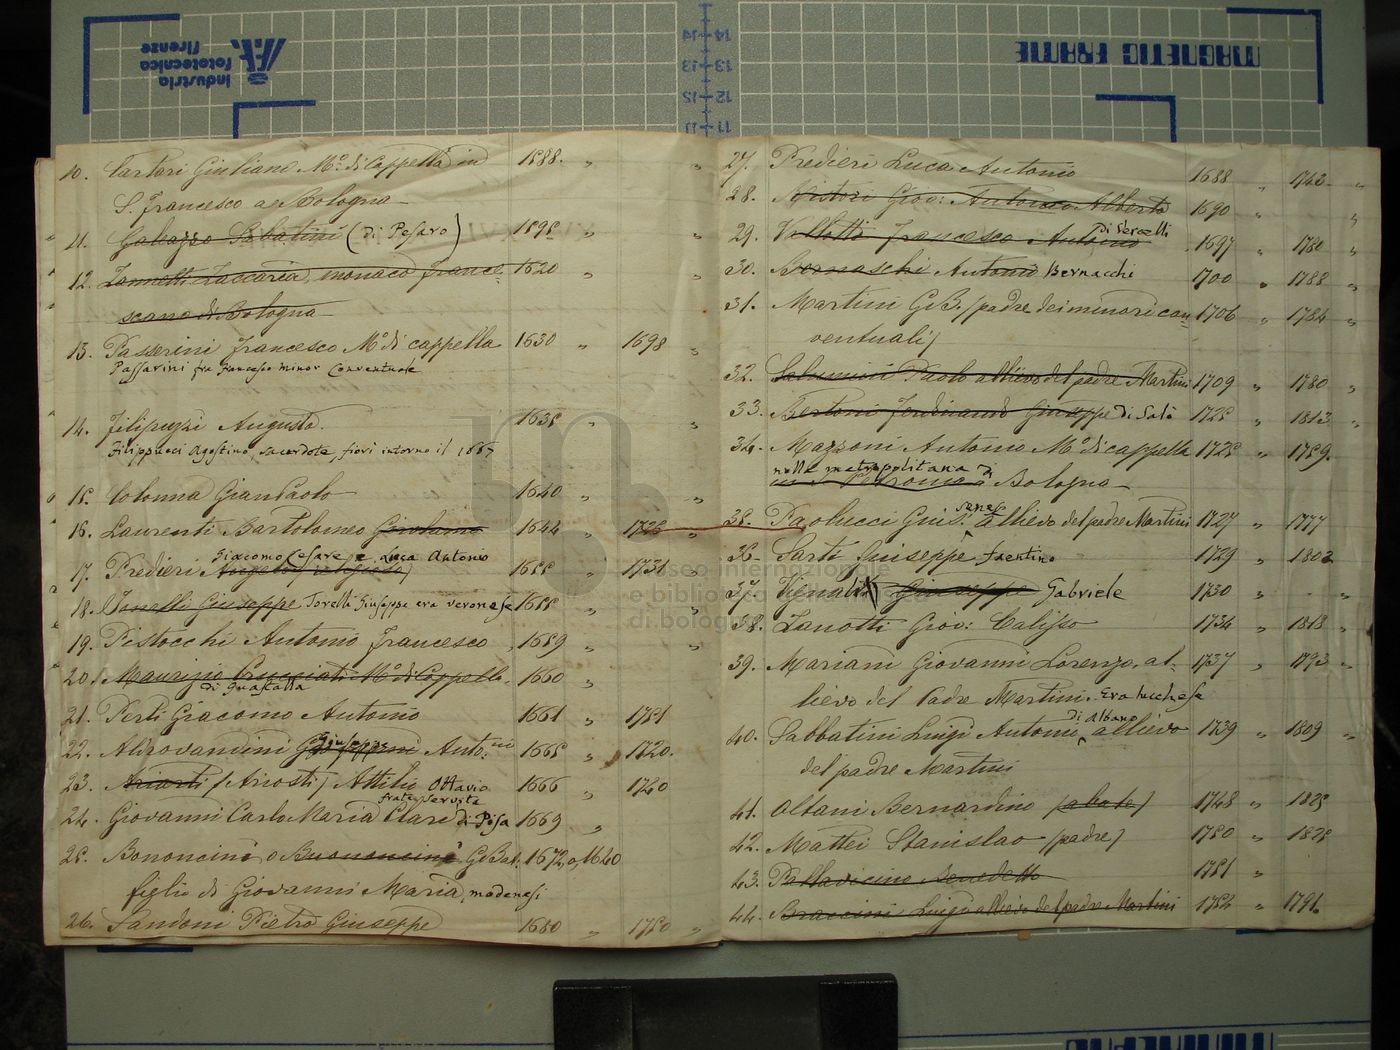 Industria
fototecnica
Firenze
MAGNETIC FRAME
14 14
13 13
12 12
11 11
10. Sartori Giuliano M.o di Cappella in 1588. "
S. Francesco a Bologna
11. Galeazzo Sabatini (di Pesaro) 1595 "
12. Zannetti Zaccaria, monaco france= 1620 "
scano di Bologna
13. Passerini Francesco M.o di cappella 1630 " 1698 "
Passarini fra Francesco minor Conventuale
14. Filipuzzi Augusto. 1635 "
Filippucci Agostino, sacerdote, fiorì intorno il 1665
15. Colonna GianPaolo 1640 "
16. Laurenti Bartolomeo Girolamo 1644 " 1726 "
Giacomo Cesare e Luca Antonio
17. Predieri Angelo 1655 " 1731 "
18. Torelli Giuseppe Torelli Giuseppe era veronese 1655 "
19. Pistocchi Antonio Francesco 1659 "
20. Maurizio Crucciati M.o di Cappella 1660 "
di Guastalla
21. Perti Giacomo Antonio 1661 " 1751
22. Aldrovandini Giuseppe Anto:ni 1665 " 1720.
23. Ariosti (Ariosti) Attilio Ottavio 1666 " 1740
frate servita
24. Giovanni Carlo Maria Clari di Pisa 1669 "
25. Bononcini o Buononcini G. Bat. 1672, o, 1640
figlio di Giovanni Maria, modenesi
26. Sandoni Pietro Giuseppe 1680 " 1750 "
27. Predieri Luca Antonio 1688 " 1743 "
28. Ristori Giov: Antonio Alberto 1690 " "
di Vercelli
29. Vallotti Francesco Antonio 1697 " 1780 "
30. Bernaschi Antonio Bernacchi 1700 " 1788 "
31. Martini G.B. (padre dei minori con= 1706 " 1784 "
ventuali)
32. Salumini Paolo allievo del padre Martini 1709 " 1780 "
33. Bertoni Ferdinando Giuseppe di Salò 1725 " 1813 "
34. Mazzoni Antonio M.o di cappella 1725 " 1789.
nella metropolitana di
in S. Petronio a Bologna
35. Paolucci Gius. allievo del padre Martini 1727 " 1777
36. Sarti Giuseppe faentino 1729 " 1802
37. Vignali Giuseppe Gabriele 1730 " - "
38. Zanotti Giov: Calisso 1734 " 1818 "
39. Mariani Giovanni Lorenzo, al= 1737 " 1793 "
lievo del Padre Martini. Era lucchese
di Albano
40. Sabbatini Luigi Antonio allievo 1739 " 1809 "
del padre Martini
41. Ottani Bernardino (abate) 1748 " 1825
42. Mattei Stanislao (padre) 1750 " 1825
43. Pallavicino Benedetto 1751 "
44. Braccini Luigi allievo del padre Martini 1754 " 1791.
museo internazionale
e biblioteca della musica
di bologna